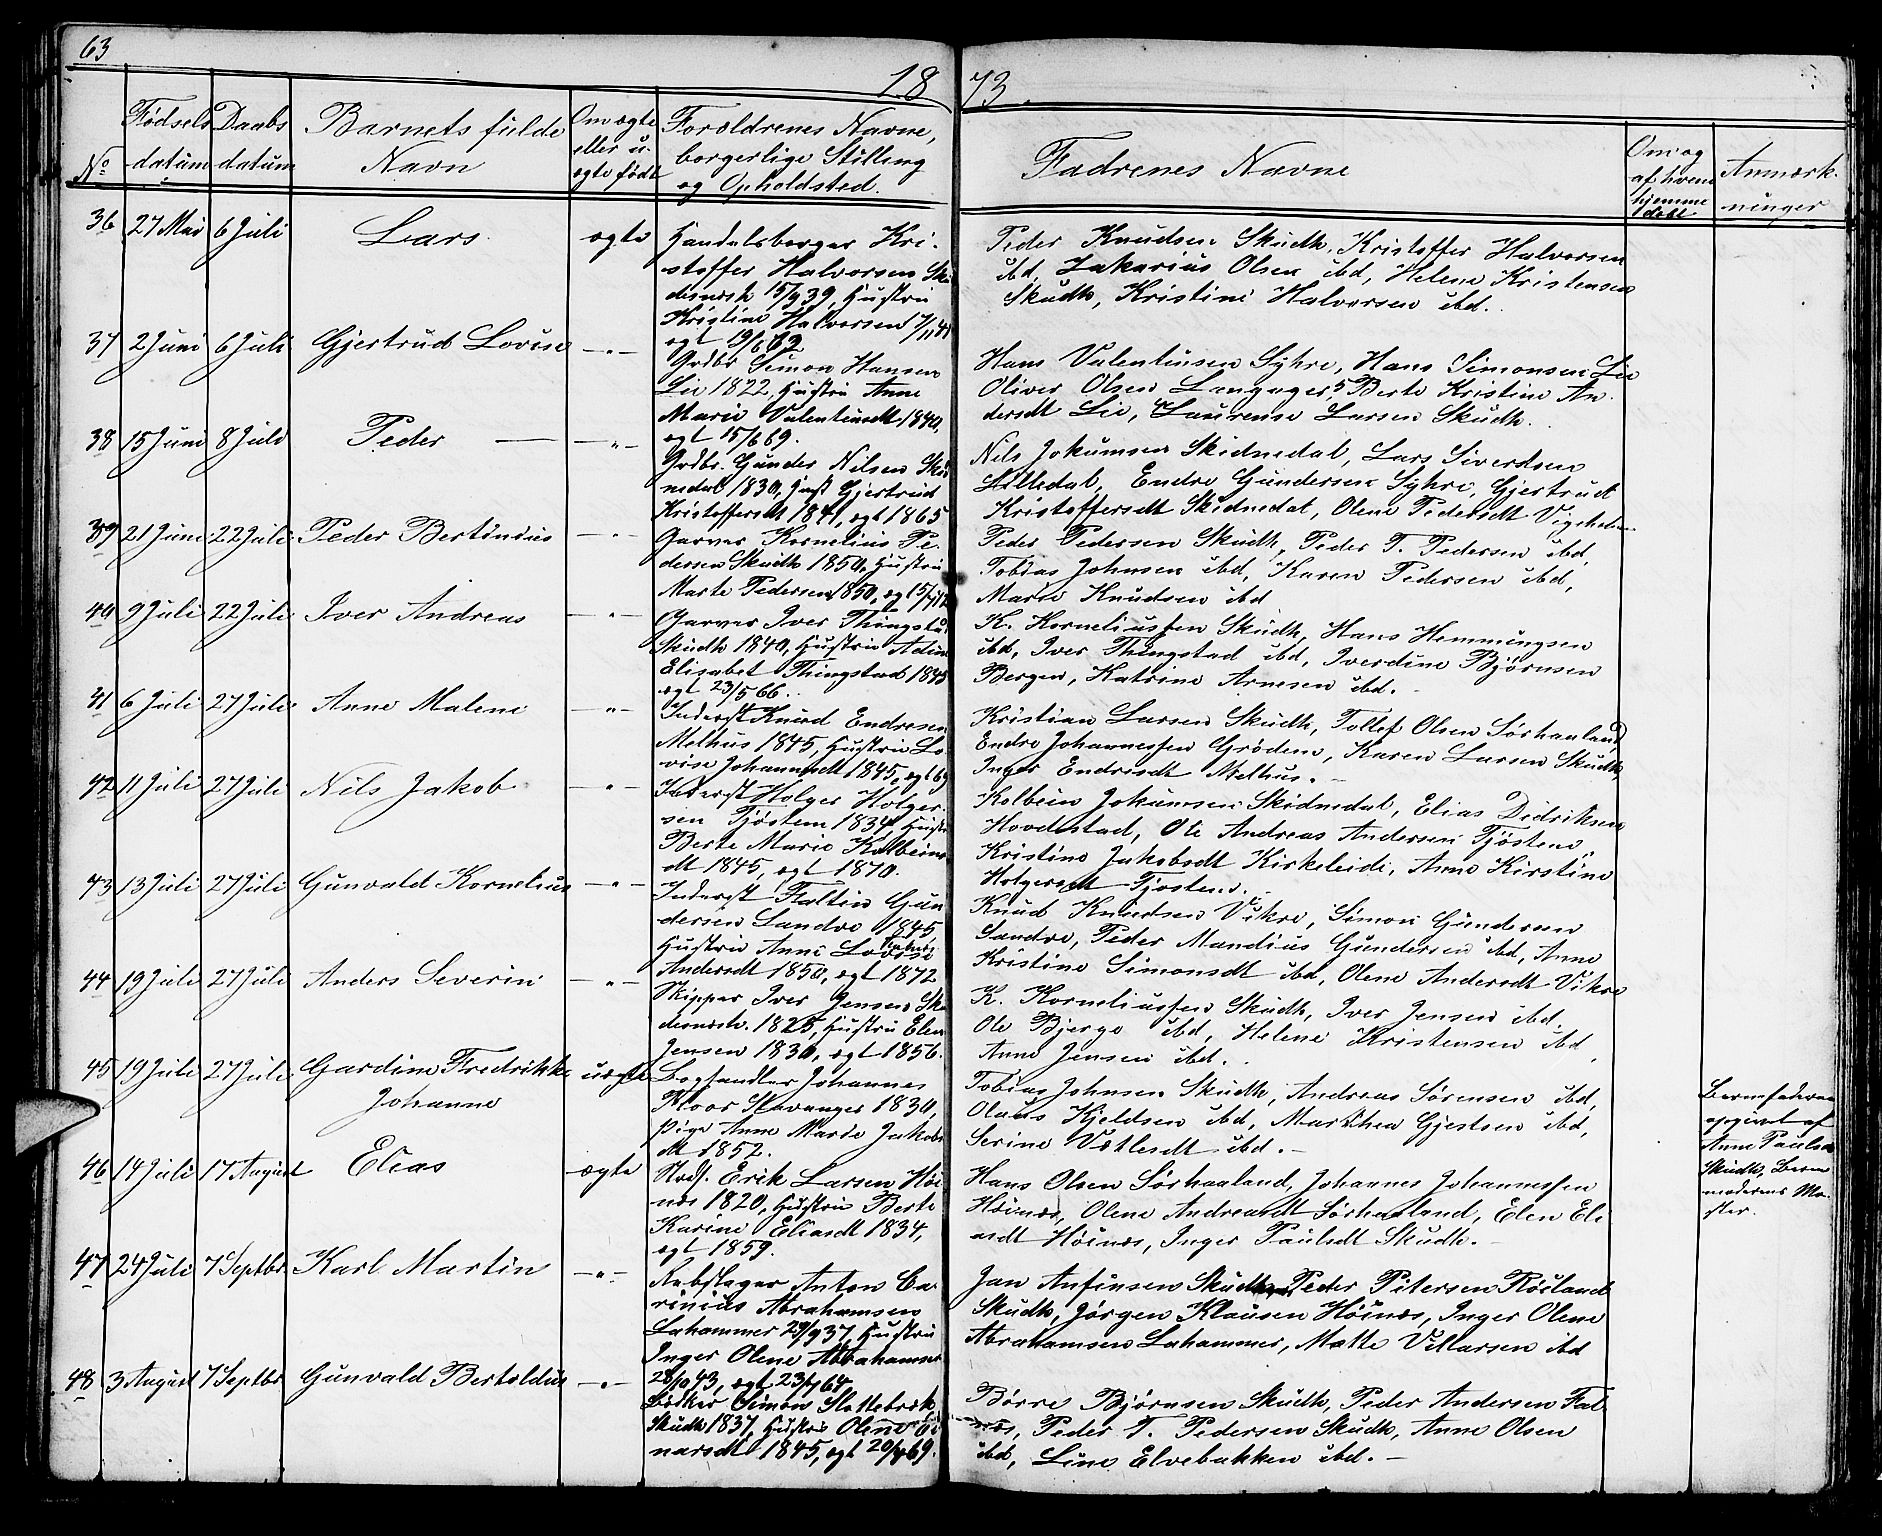 63
1873.
No
Fødsels datum
Daabs datum
Barnets fulde Navn
Om ægte eller u. ægte født
Forældrenes Navne, borgerlige Stilling og Opholdsted.
Fadrenes Navne
Om og af hvem hjemme døbt
Anmærk- ninger
36 27 Mai 6 Juli Lars ægte
Handelsborger Kri-
stoffer Halvorsen Sku
desnæsh 15/9 39, Hustru
Kristine Halvorsen 7/11 41
ægt 19/6 62
Peder Knudsen Skudh, Kristoffer Halvorsen
ibd, Zakarius Olsen ibd, Helene Kristensen
Skudh, Kristine Halvorsen ibd.
37 2 Juni 6 Juli Gjertrud Lovise -"-
Grdbr Simon Hansen
Lie 1822, Hustru Anne
Marie Valentinsdt 1840,
ægt 15/6 69.
Hans Valentinsen Syhre, Hans Simonsen Lie
Oliver Olsen Langager, Berte Kristine An-
dersdt Lie, Laurense Larsen Skudh.
38 15 Juni 8 Juli Peder -"-
Grdbr. Gunder Nilsen Skid
nedal 1830, Hust Gjertrud
Kristoffersdt 1841, ægt 1865
Nils Jokumsen Skidnedal, Lars Siverdsen
Lilledal, Endre Gundersen Syhre, Gjertrud
Kristoffersdt Skidnedal, Olene Pedersdt
39 21 Juni 22 Juli Peder Bertinius -"-
Garver Kornelius Pe-
dersen Skudh 1850, Hustru
Marte Pedersen 1850, ægt
Peder Pedersen Skudh, Peder T. Pedersen ibd,
Tobias Johnsen ibd, Karen Pedersen ibd,
Marie Knudsen ibd
40 9 Juli 22 Juli Iver Andreas -"-
Garver Iver Thingstad
Skudh 1840, Hustru
Elisabet Thingstad 1845
ægt 23/5 66.
K. Korneliussen Skudh, Hans Hemmingsen
ibd, Iver Thingstad ibd, Iverdine Bjørnsen
Bergen, Katrine Arnesen ibd.
41 6 Juli 27 Juli Anne Malene -"-
Inderst Knud Endresen
Melhus 1845, Hustru Lo-
vise Johannesdt 1845, ægt 69
Kristian Larsen Skudh, Tollef Olsen Sørhaaland,
Endre Johannessen Grødem, Karen Larsen Skudh,
Inger Endresdt Melhus.
42 11 Juli 27 Juli Nils Jakob -"-
Inderst Holger Holger-
sen Tjøstem 1834, Hustru
Berte Marie Kolbeins
dt 1845, ægt 1870.
Kolbein Jokumsen Skidnedal, Elias Didriksen
Hovdestad, Ole Andreas Andersen Tjøstem,
Kristine Jakobsdt Kirkeleidi, Anne Kirstine
Holgersdt Tjøstem.
43 13 Juli 27 Juli Gunvald Kornelius -"-
Inderst Faltin Gun
dersen Sandve 1845
Hustru Anne Lovise
Andersdt 1850, ægt 1872
Knud Knudsen Vikre, Simon Gundersen
Sandve, Peder Mandius Gundersen ibd, Anne
Kristine Simonsdt ibd, Olene Andersdt Vikre
44 19 Juli 27 Juli Anders Severin -"-
Skipper Iver Jensen Sku
desnæsh. 1825, Hustru Elen
Jensen 1830, ægt 1856.
K. Korneliussen Skudh, Iver Jensen ibd,
Ole Bjerge ibd, Helene Kristensen ibd,
Anne Jensen ibd.
45 19 Juli 27 Juli Gardine Fredrikke Johanne uægte
Boghandler Johannes
Floor Stavanger 1830,
pige Anne Marie Jakobs
dt 1852.
Tobias Johnsen Skudh, Andreas Sørensen ibd,
Olaus Kjeldsen ibd, Marthea Gjertsen ibd,
Serine ibd.
Barnefaderen
opgivet af
Anne Paulsdt
Skudh, Barne
moderens Mo-
ster.
46 14 Juli 17 August Elias ægte
Erik Larsen Høi
næs 1820, Hustru Berte
Karine Eliasdt 1834,
ægt 1859.
Hans Olsen Sørhaaland, Johannes Johannessen
Høinæs, Olene Andreasdt Sørhaaland, Elen Eli
asdt Høinæs, Inger Paulsdt Skudh.
47 24 Juli 7 Septbr. Karl Martin -"-
Rebslager Anton Ca-
rinius Abrahamsen
Lahammer 29/9 37, Hustru
Inger Olene Abrahamsen
43, ægt 64
Jan Anfinsen Skudh, Peder Petersen Røsland
Skudh, Jørgen Klausen Høinæs, Inger Olene
Abrahamsen Lahammer, Matte Villarsen ibd
48 3 August 7 Septbr Gunvald Bertoldus -"-
Bødker Simon Slottebræk
Skudh 1837, Hustru Olene Ei
narsdt 1845, ægt 69.
Børre Bjørnsen Skudh, Peder Andersen Fal
næs, Peder T. Pedersen Skudh, Anne Olsen
ibd, Line Elvebakken ibd.